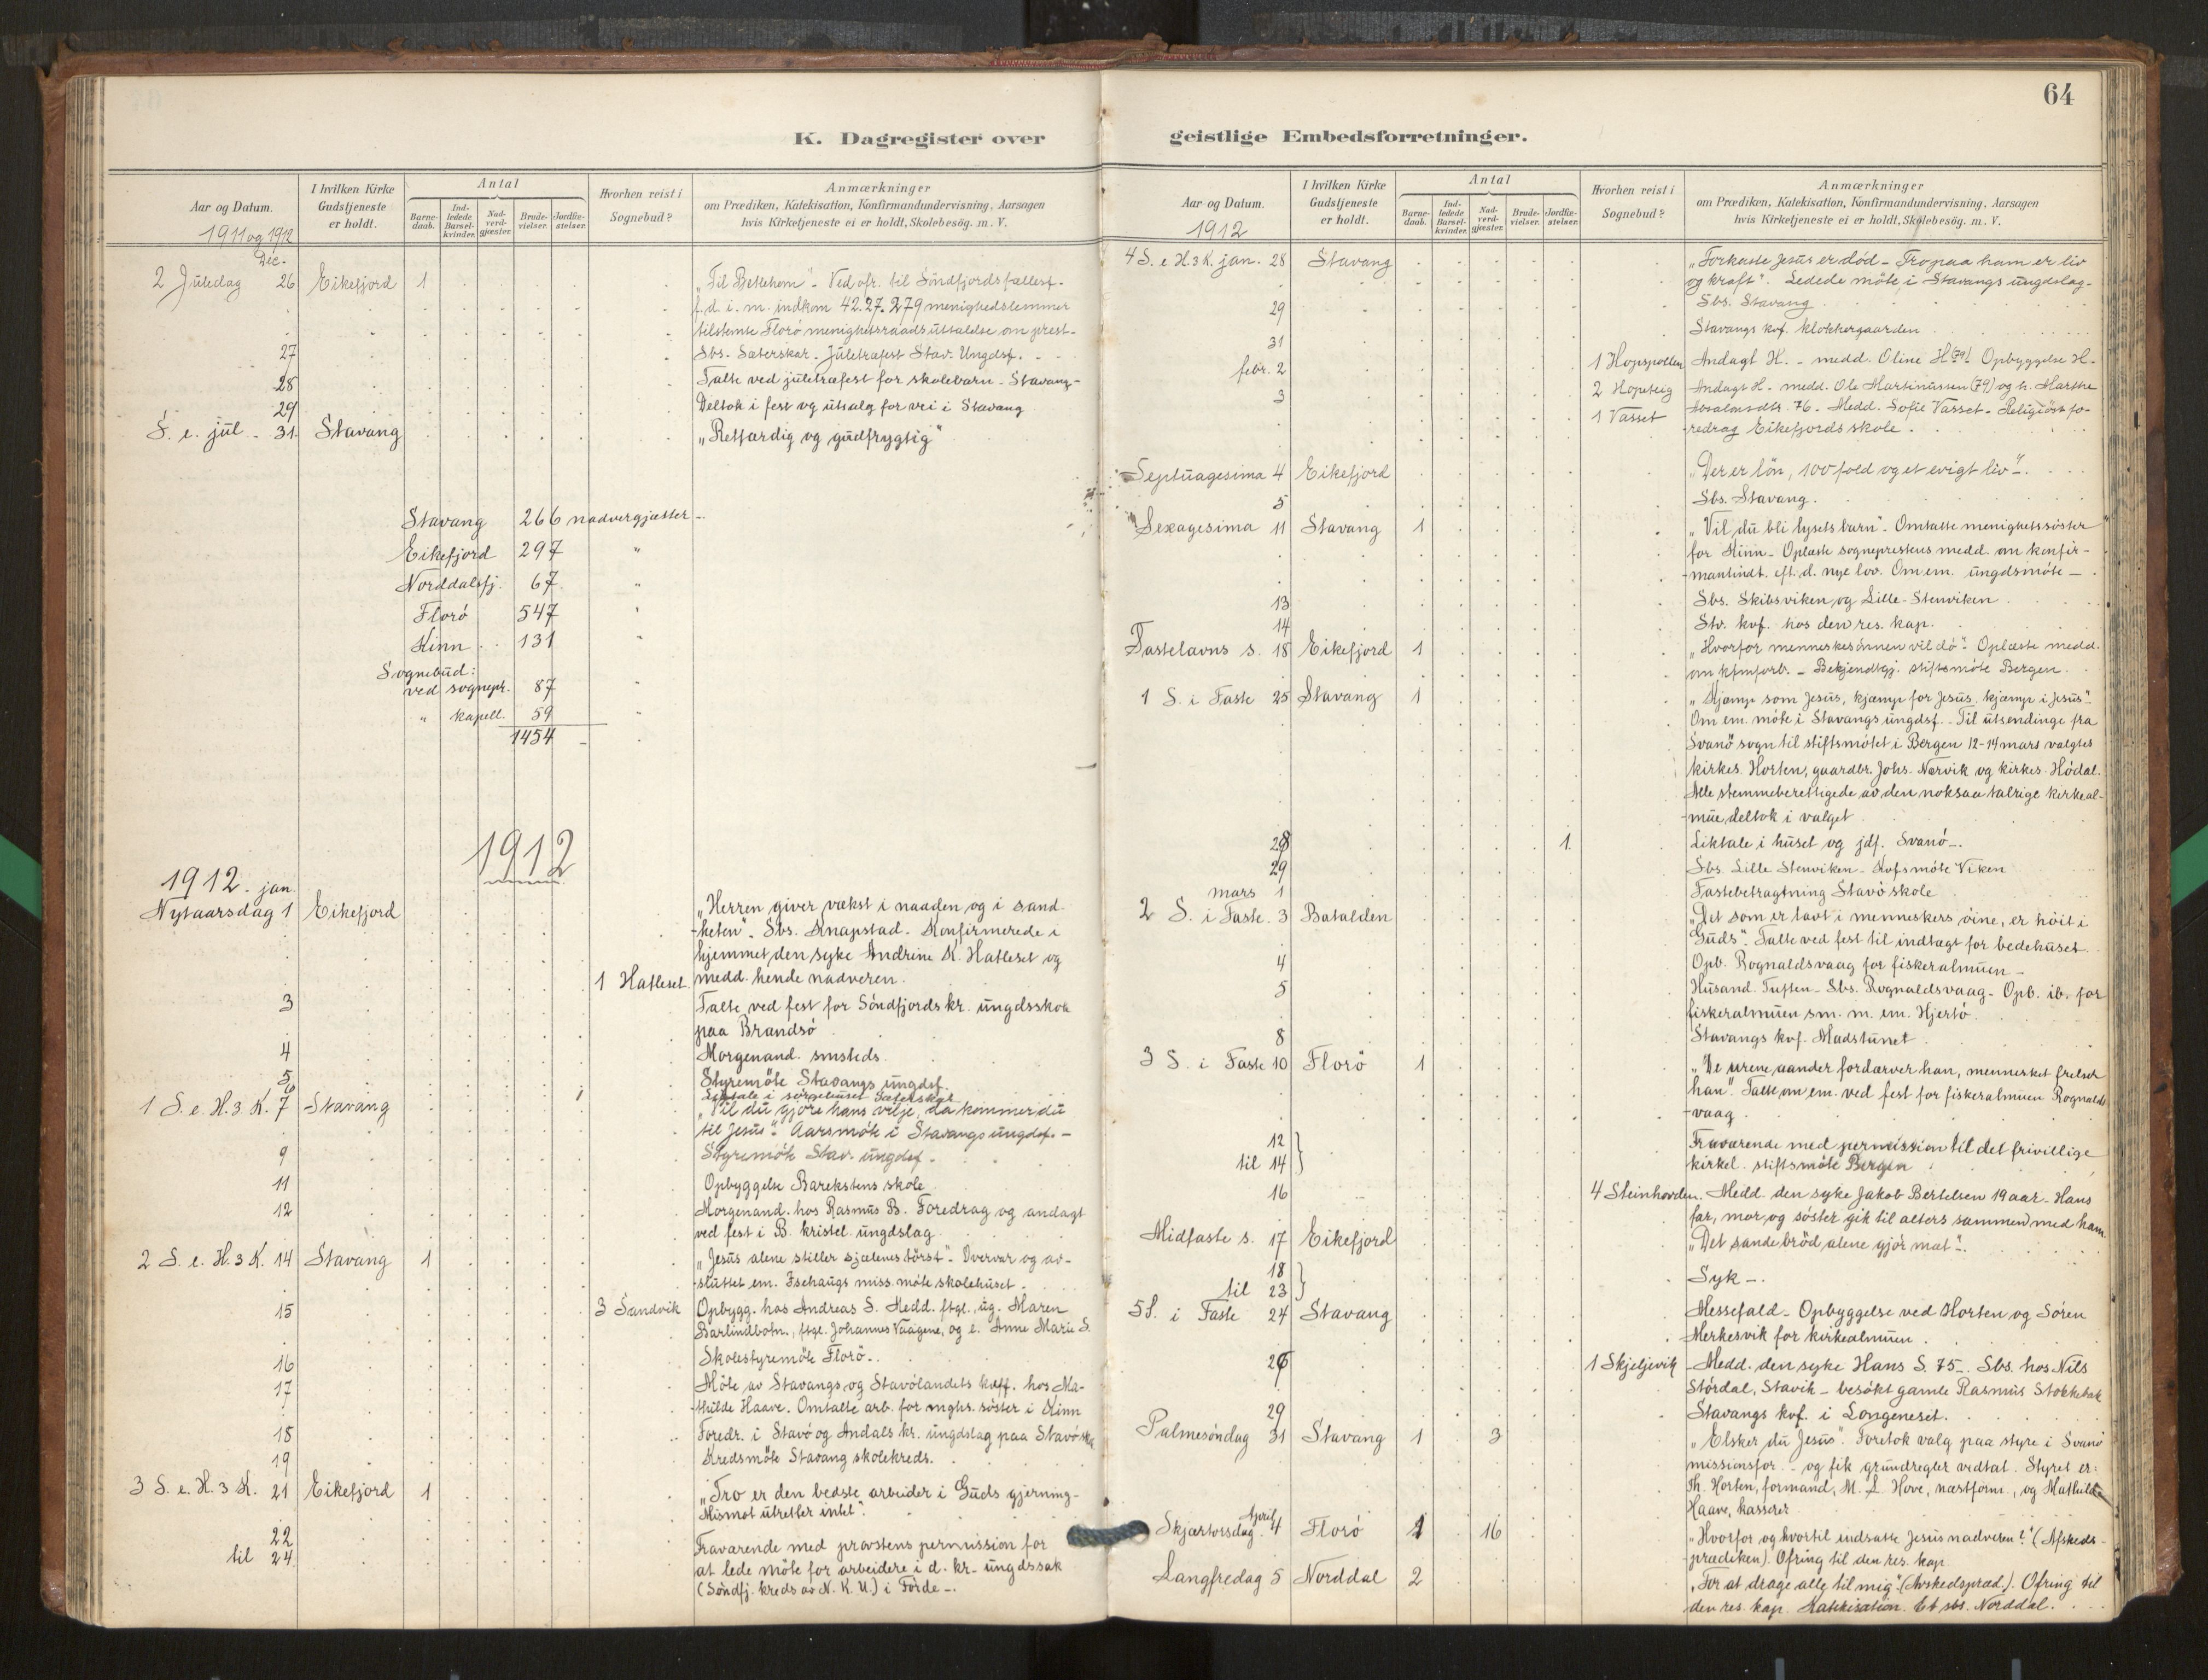 64
K. Dagregister over geistlige Embedsforretninger.
Aar og Datum.
1911 og 1912
I hvilken Kirke Gudstjeneste er holdt.
Antal
Barnedaab.
Indledede Barselkvinder.
Nadverdgjæster.
Brudevielser.
Jordfæstelser.
Hvorhen reist i Sognebud?
Anmærkninger
om Prædiken, Katekisation, Konfirmandundervisning, Aarsagen
hvis Kirketjeneste ei er holdt, Skolebesög. m. V.
Dec.
2 Juledag 26 Eikefjord 1 „Til Betlehem". Ved ofr. til Söndfjords fællesf.
f. d. i. m. indkom 42.27. 279 menighedslemmer
tilstemte Florö menighetsraads uttalelse om prest-
27 Sbs. Sæterskar. Juletræfest Stav. Ungdsf.
28 Talte ved juletræfest for skolebarn - Stavang-
29 Deltok i fest og utsalg for vei i Stavang
S. e. jul - 31 Stavang „Retfærdig og gudfrygtig"
Stavang 266 nadvergjæster -
Eikefjord 297 "
Norddalsfj. 67 "
Florö 547 "
Kinn 131 "
Sognebud:
ved sognepr. 87 "
" kapell. 59 "
1454
1912
1912. jan.
Nytaarsdag 1 Eikefjord „Herren giver vækst i naaden og i sand-
heten". Sbs. Knapstad. Konfirmerede i
hjemmet den syke Andrine K. Hatleset og
1 Hatleset. medd. hende nadveren.
3 Talte ved fest for Söndfjords kr. ungdsskole
paa Brandsö
4 Morgenand. smsteds.
5 Styremöte Stavangs ungdsf.
6 Liktale i sörgehuset Sæterskar
1 S. e. H. 3 K. 7 Stavang „Vil du gjöre hans vilje, da kommer du
til Jesus". Aarsmöte i Stavangs ungdsf. -
9 Styremöte Stav. ungdsf.
11 Opbyggelse Barekstens skole
12 Morgenand. hos Rasmus B. Foredrag og andagt
ved fest i B. kristel. ungdslag
2 S. e. H. 3 K. 14 Stavang 1 „Jesus alene stiller sjælenes törst". Overvar og av-
sluttet em. Fschaugs miss. möte skolehuset.
15 3 Sandvik Opbygg. hos Andreas S. Medd. ftgl. ug. Maren
Barlindbotn., ftgl. Johannes Vaagene, og e. Anne Marie S.
16 Skolestyremöte Florö.
17 Möte av Stavangs og Stavölandets kvff. hos Ma-
thilde Haave. Omtalte arb. for mghs. söster i Kinn
18 Foredr. i Stavö og Andals kr. ungdslag paa Stavö sk.
19 Kredsmöte Stavang skolekreds.
3 S. e. H. 3 K. 21 Eikefjord 1 „Tro er den bedste arbeider i Guds gjerning-
Mismot utretter intet".
22 Fraværende med provstens permission for
til 24 at lede möte for arbeidere i d. kr. ungdssak
(Söndfj. kreds av N. K. U.) i Förde -.
Aar og Datum.
1912
I hvilken Kirke Gudstjeneste er holdt.
Antal
Barnedaab.
Indledede Barselkvinder.
Nadverdgjæster.
Brudevielser.
Jordfæstelser.
Hvorhen reist i Sognebud?
Anmærkninger
om Prædiken, Katekisation, Konfirmandundervisning, Aarsagen
hvis Kirketjeneste ei er holdt, Skolebesög. m. V.
4 S. e H. 3 K. jan. 28 Stavang „Forkaste Jesus er död - Tro paa ham er liv
og kraft". Ledede möte i Stavangs ungdslag-
29 Sbs. Stavang
31 Stavangs kvf. klokkergaarden
febr. 2 1 Hopspollen Andagt H. - medd. Oline H (79). Opbyggelse H-
3 2 Hopsteig Andagt H. medd. Ole Martinussen (79) og h. Marthe
1 Vasset Absalonsdtr. 76 - Medd. Sofie Vasset - Religiöst fo-
redrag Eikefjords skole.
Septuagesima 4 Eikefjord „Der er lön, 100 fold og et evigt liv".
5 Sbs. Stavang.
Sexagesima 11 Stavang 1 „Vil du bli lysets barn". Omtalte menighetssöster
for Kinn - Oplæste sogneprestens medd. om konfir-
mantindt. eft. d. nye lov. Om em. ungdsmöte -
13 Sbs. Skibsviken og Lille-Stenviken
14 Stv. kvf. hos den res. kap.
Fastelavns s. 18 Eikefjord 1 „Hvorfor menneskesönnen vil dö". Oplæste medd.
om kfmforb. - Bekjendtgj. stiftsmöte Bergen.
1 S. i Faste 25 Stavang 1 „Kjæmp som Jesus, kjæmp for Jesus, kjæmp i Jesus".
Om em. möte i Stavangs ungdsf. - Til utsendinge fra
Svanö sogn til stiftsmötet i Bergen 12-14 mars valgtes
kirkes. Horten, gaardbr. Johs. Nærvik og kirkes. Hödal.
Alle stemmeberettigede av den noksaa talrige kirkeal-
mue deltok i valget
28 1. Liktale i huset og jdf. Svanö -.
29 Sbs. Lille Stenviken - Kvfsmöte Viken
mars 1 Fastebetragtning Stavö skole
2 S. i Faste 3 Batalden „Det som er lavt i menneskers öine, er höit i
Guds". Talte ved fest til indtægt for bedehuset
4 Opb. Rognaldsvaag for fiskeralmuen -
5 Husand. Tuften - Sbs. Rognaldsvaag - Opb. ib. for
fiskeralmuen sm. m. em. Hjertö.
8 Stavangs kvf. Madstunet
3 S. i Faste 10 Florö 1 „De urene aander fordærver han, mennesket frelser
han". Talte om em. ved fest for fiskeralmuen Rognalds-
vaag
12 Fraværende med permission til det frivillige
til 14 kirkel. stiftsmöte Bergen
16 4 Steinhovden. Medd. den syke Jakob Bertelsen 19 aar - Hans
far, mor og söster gik til alters sammen med ham.
Midfaste s. 17 Eikefjord „Det sande bröd alene gjör mæt".
18
til 23 Syk -.
5 S. i Faste 24 Stavang Messefald - Opbyggelse ved Horten og Sören
Merkesvik for kirkealmuen
26 1 Skjeljevik Medd. den syke Hans S. 75 -. Sbs. hos Nils
Stördal, Stavik - besökt gamle Rasmus Stokkebæk
29 Stavangs kvf. i Longeneset.
Palmesöndag 31 Stavang 1 3 „Elsker du Jesus". Foretok valg paa styre i Svanö
missionsfor. - og fik grundregler vedtat. Styret er:
Th. Horten, formand, M. S. Hove, næstform., og Mathilde
Haave, kasserer
April
Skjærtorsdag 4 Florö 1 16 „Hvorfor og hvortil indsatte Jesus nadveren?" (Afskeds-
prædiken). Ofring til den res. kap.
Langfredag 5 Norddal 2 „For at drage alle til mig". (Avskedspræd.). Ofring til
den res. kap. Katekisation. Et sbs. Norddal.